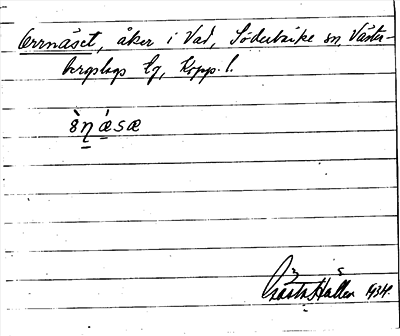 Orrnäset, åker i Vad, Söderbärke sn, Väster-
bergslags bg, Kopp. l.
Gösta Hallen 1934.